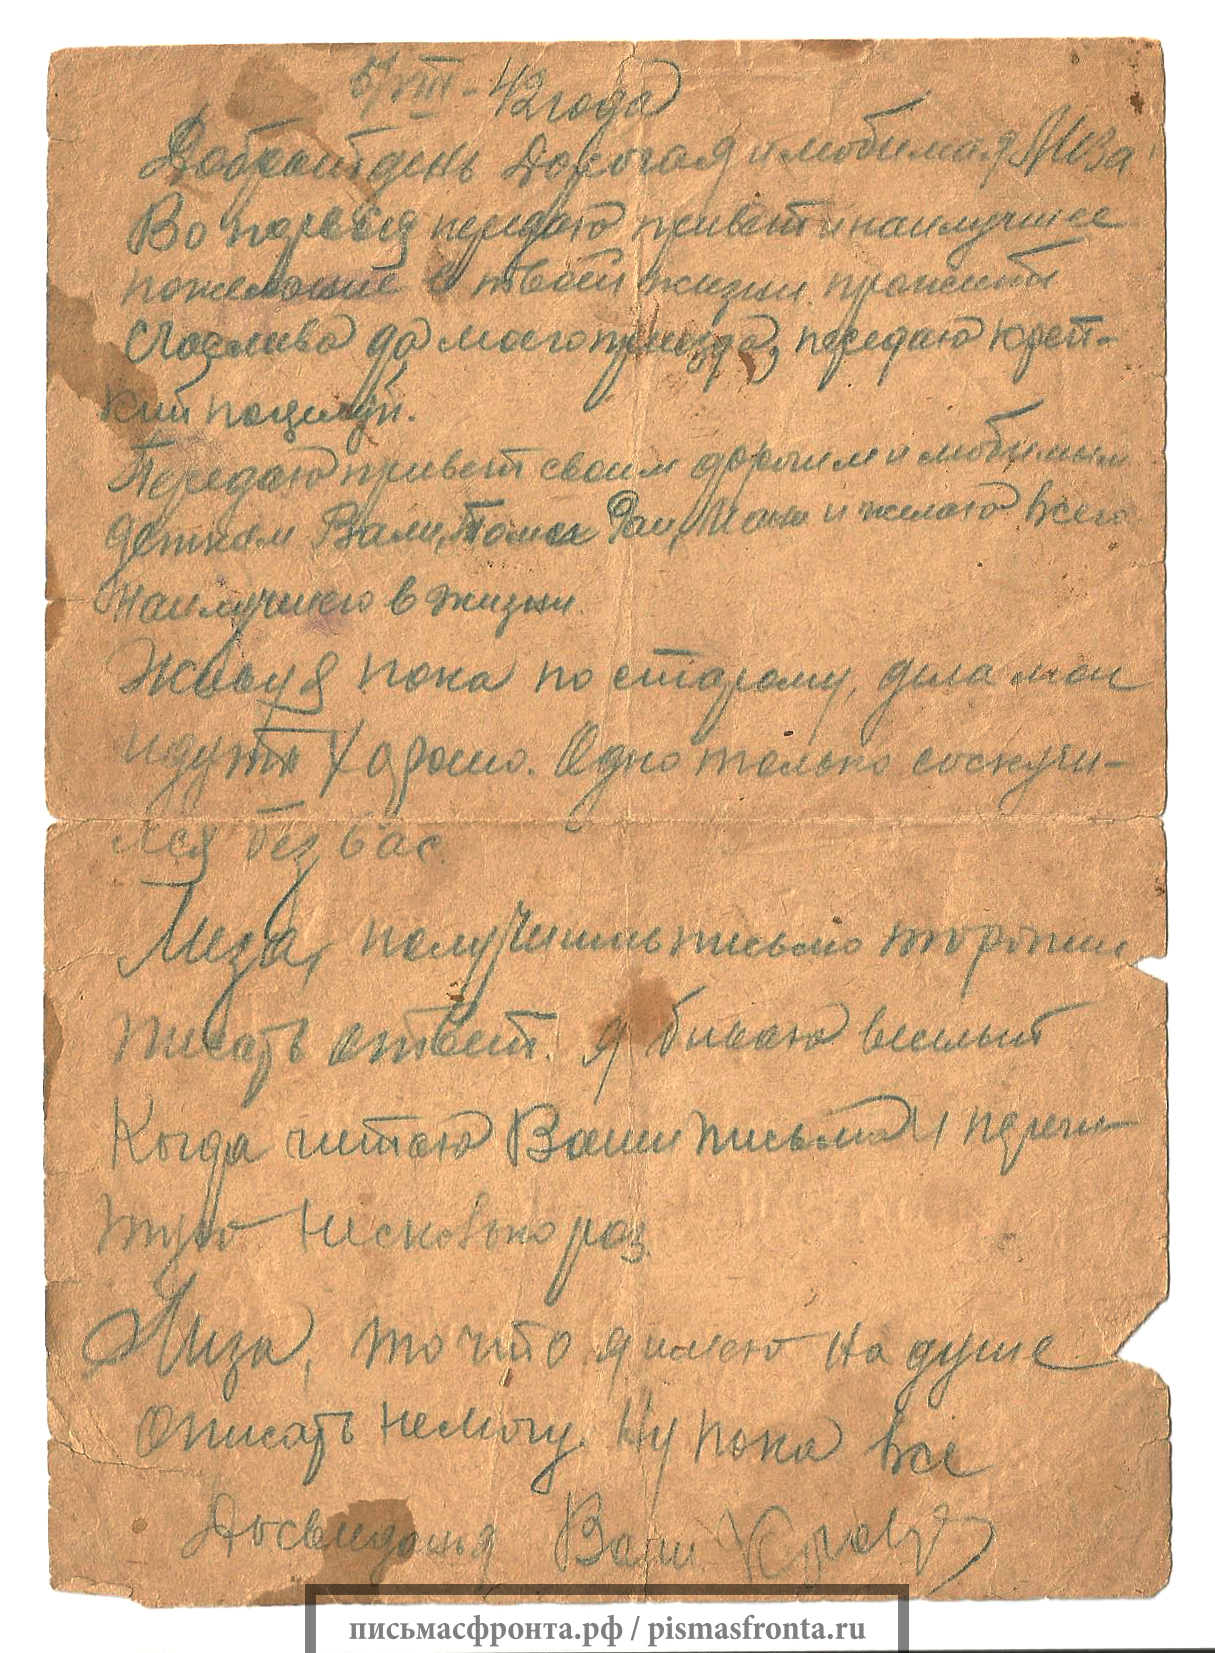 5/VIII - 42 года
Добрый день Дорогая и любимая Лиза!
Во первыя передаю привет и наилучшее
пожелание в твоей жизни прожить
счаслива до моего приезда, передаю креп-
кий поцелуй.
Передаю привет своим дорогим и любимым
деткам Вали, Томе и желаю всего
наилучшего в жизни.
Живу я пока по старому, дела мои
идуть хорошо. Одно только соскучи-
лся без вас.
Лиза, получишь письмо торопись
писать ответ. Я бываю веселый
Когда читаю Ваши письма и перечи
тую несколько раз.
Лиза, то что я имею на душе
описать немогу. Ну пока все
Досвиданья Ваш
письмасфронта.рф / pismasfronta.ru